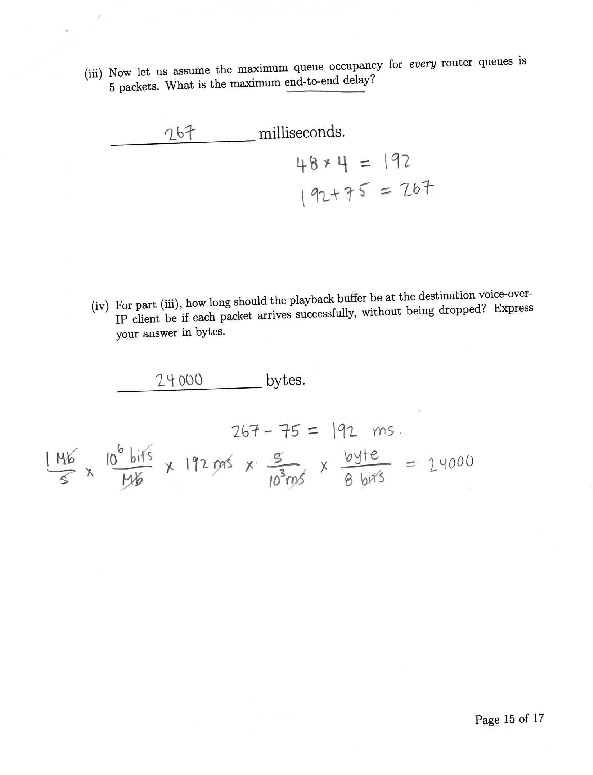 (iii) Now let us assume the maximum queue occupancy for every router queues is
5 packets. What is the maximum end-to-end delay?
267 milliseconds.
48 × 4 = 192
192 + 75 = 267
(iv) For part (iii), how long should the playback buffer be at the destination voice-over-
IP client be if each packet arrives successfully, without being dropped? Express
your answer in bytes.
24000 bytes.
267 - 75 = 192 ms.
1 Mb/s × 10^6 bits/Mb × 192 ms × s/10^3 ms × byte/8 bits = 24000
Page 15 of 17